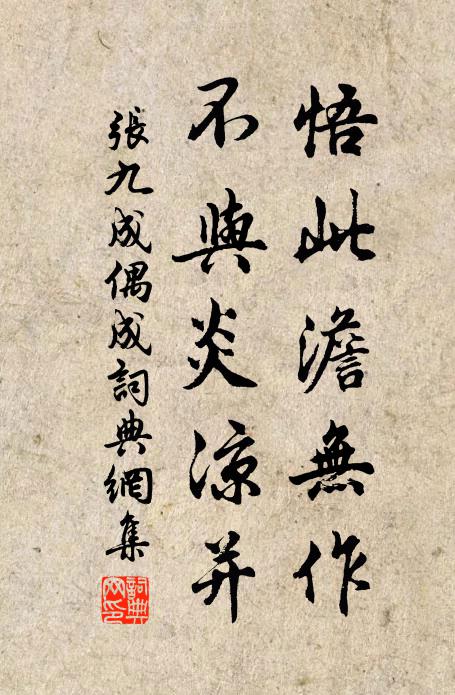 悟此澹無作
不與炎涼并
張九成偶成詞典網集
詞典网印